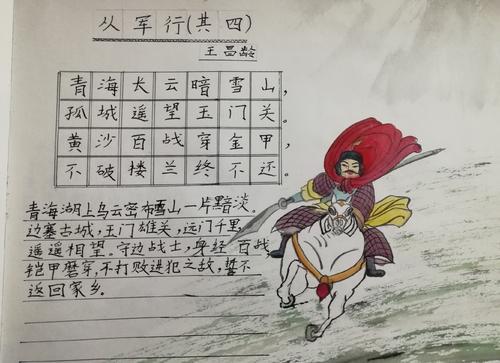 从军行(其四)
王昌龄
青海长云暗雪山，
孤城遥望玉门关。
黄沙百战穿金甲，
不破楼兰终不还。
青海湖上乌云密布雪山一片黯淡。
边塞古城，玉门雄关，远门千里，
遥遥相望。守边战士，身经百战，
铠甲磨穿，不打败进犯之敌，誓不
返回家乡。